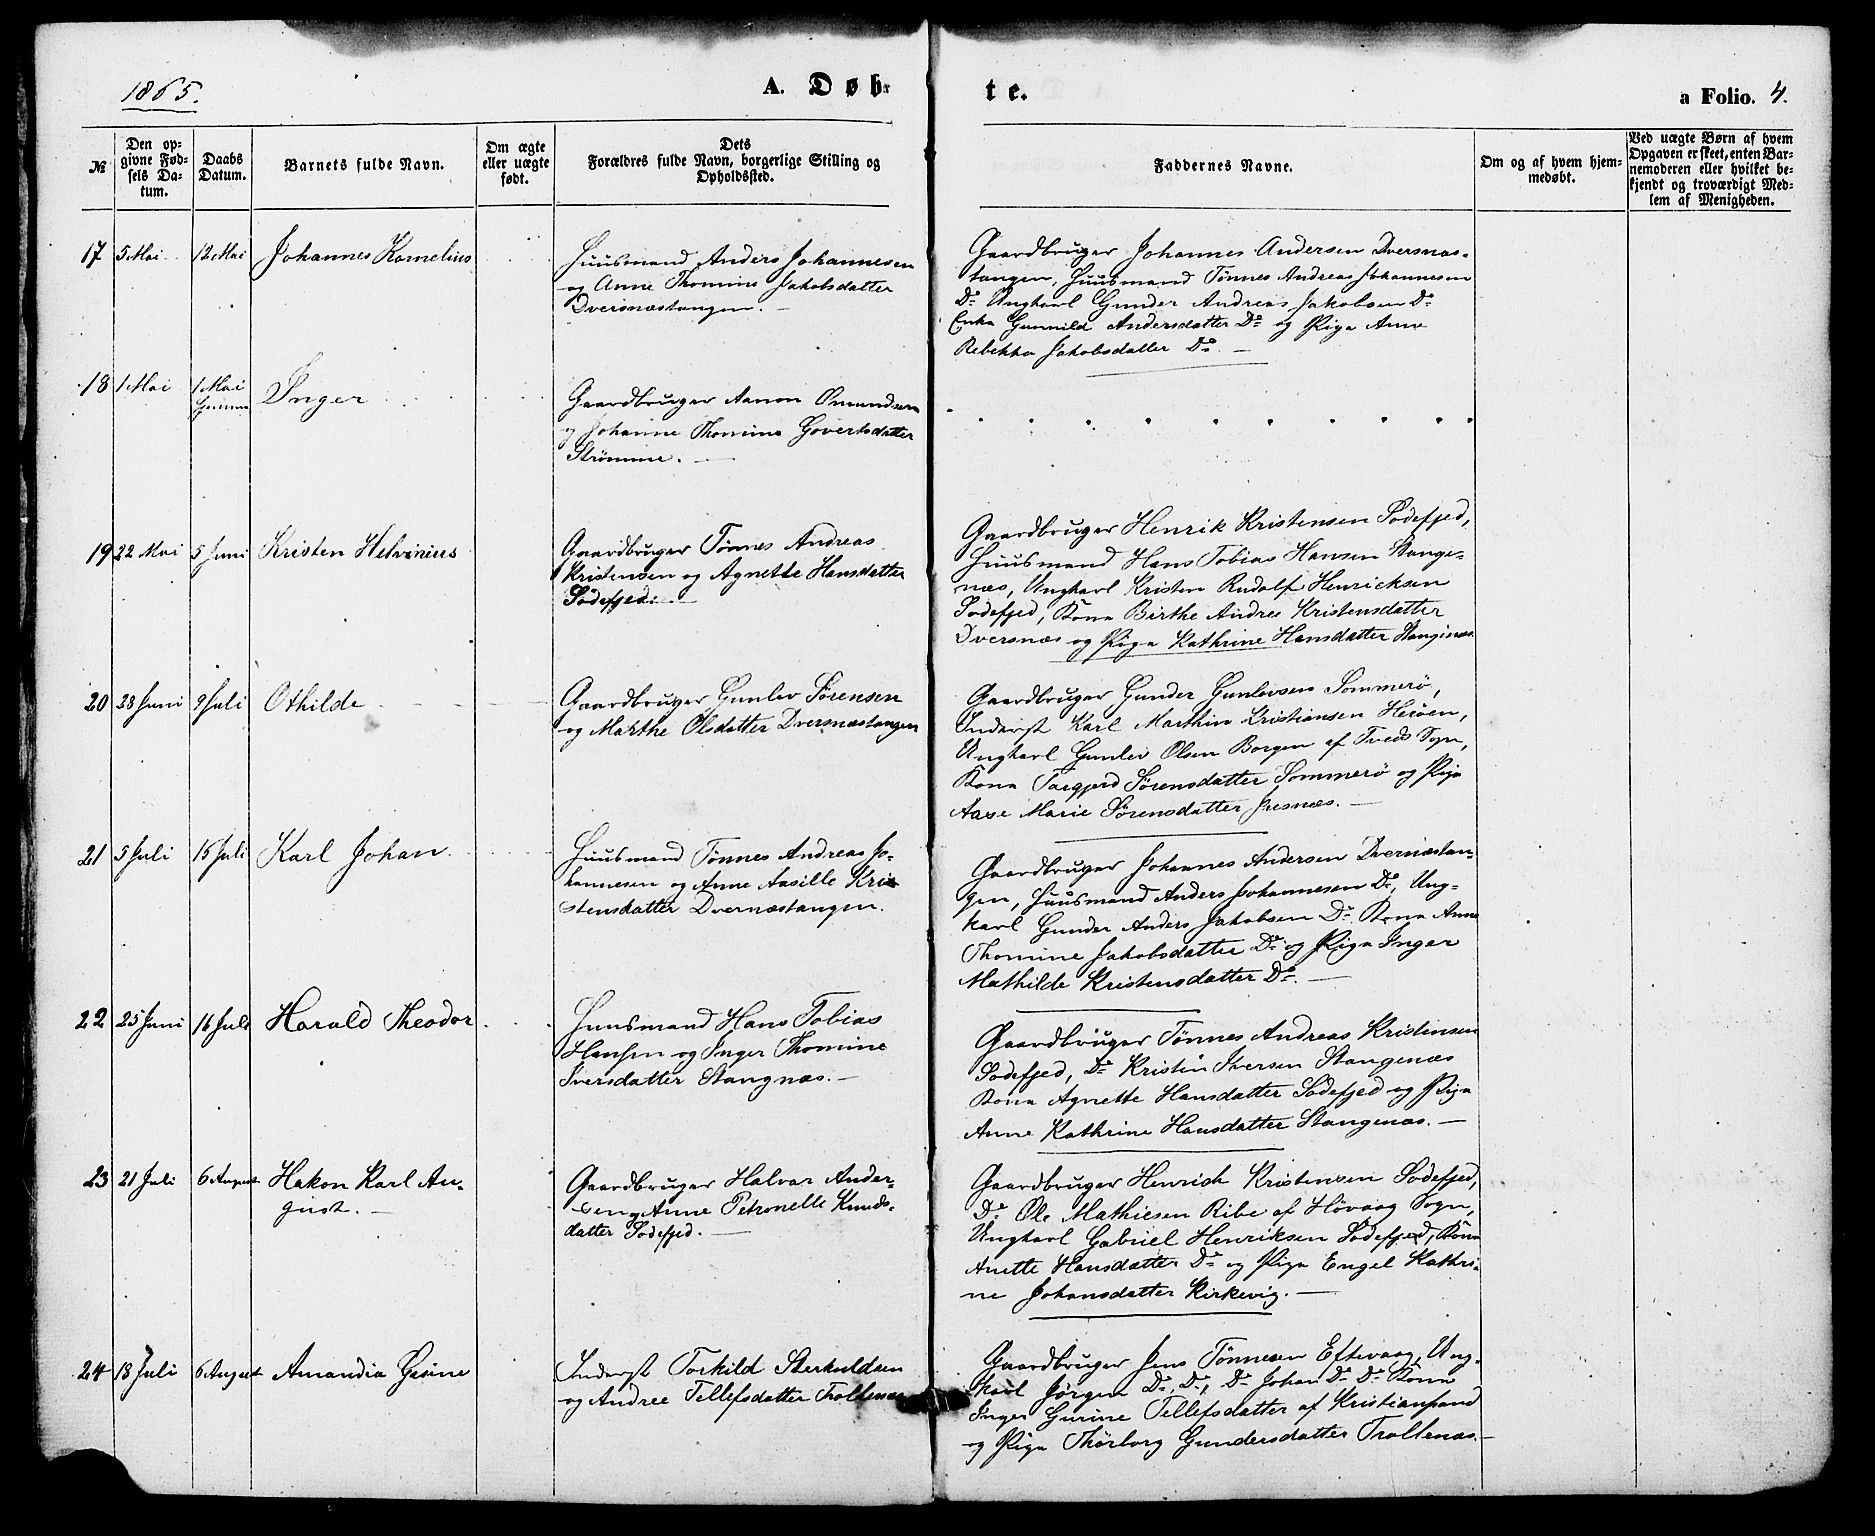 1865.
A. Døb-
te.
a Folio. 4.
№
Den op-
givne Fød-
sels Da-
tum.
Daabs
Datum.
Barnets fulde Navn.
Om ægte
eller uægte
født.
Dets
Forældres fulde Navn, borgerlige Stilling og
Opholdssted.
Faddernes Navne.
Om og af hvem hjem-
medøbt.
Ved uægte Børn af hvem
Opgaven er skeet, enten Bar-
nemoderen eller hvilket be-
kjendt og troværdigt Med-
lem af Menigheden.
17 5 Mai 12 Mai Johannes Kornelius
Huusmand Anders Johannesen
og Anne Thomine Jakobsdatter
Dversnæstangen. —
Gaardbruger Johannes Andersen Dversnæs-
tangen, Huusmand Tønnes Andreas Johannesen
Do Ungkarl Gunder Andreas Jakobsen Do
Enke Gunnild Andersdatter Do og Pige Anne
Rebekka Jakobsdatter Do. —
18 1 Mai 1 Mai Inger
Gaardbruger Aanon Omundsen
og Johanne Thomine Govertsdatter
Strømme. —
19 22 Mai 5 Juni Kristen Helvinius
Gaardbruger Tønnes Andreas
Kristensen og Agnette Hansdatter
Sødefjed. —
Gaardbruger Henrik Kristensen Sødefjed,
Huusmand Hans Tobias Hansen Stange-
næs, Ungkarl Kristen Rudolf Henricksen
Sodefjed, Kona Birthe Andree Kristensdatter
Dversnæs og Pige Kathrine Hansdatter Stangenæs
20 28 Juni 9 Juli Othilde
Gaardbruger Gunlev Sørensen
og Marthe Olsdatter Dversnæstangen
Gaardbruger Gunder Gunlevsen Sommerø,
Inderst Karl Marthin Kristiansen Herøen,
Ungkarl Gunlev Olsen Borgen af Tveds Sogn,
Kona Targjerd Sørensdatter Sommerø og Pige
Aase Marie Sørensdatter —
21 5 Juli 15 Juli Karl Johan
Huusmand Tønnes Andreas Jo-
hannesen og Anne Aasille Kri-
stensdatter Dvernæstangen.
Gaardbruger Johannes Andersen Dvernæstan-
gen, Huusmand Anders Johannesen Do, Ung-
karl Gunder Anders Jakobsen Do Kona Anne
Thomine Jakobsdatter Do og Pige Inger
Mathilde Kristensdatter Do. —
22 25 Juni 16 Juli Harald Theodor
Huusmand Hans Tobias
Hansen og Inger Thomine
Iversdatter Stangnæs. —
Gaardbruger Tønnes Andreas Kristensen
Sødefjed, Do Kristen Iversen Stangenæs
Kona Agnette Hansdatter Sødefjed og Pige
Anne Kathrine Hansdatter Stangenæs. —
23 21 Juli 6 August Hakon Karl Au-
gust. —
Gaardbruger Halvar Ander-
sen og Anne Petronelle Knuds-
datter Sodefjed. —
Gaardbruger Henrich Kristensen Sødefjed,
Do Ole Mathiesen Ribe af Høvaag Sogn,
Ungkarl Gabriel Henriksen Sødefjed, Kona
Anette Hansdatter Do og Pige Engel Kathri-
ne Johansdatter Kirkevig. —
24 13 Juli 6 August Amandia Gesine
Inderst Torkild Sterkuldsen
og Andree Tellefsdatter Trollenæs
Gaardbruger Jens Tønnesen Eftevaag, Ung-
karl Jörgen Do, Do, Do Johan Do Do Kona
Inger Gurine Tellefsdatter af Kristiansand
og Pige Thörborg Gundersdatter Trollenæs. —